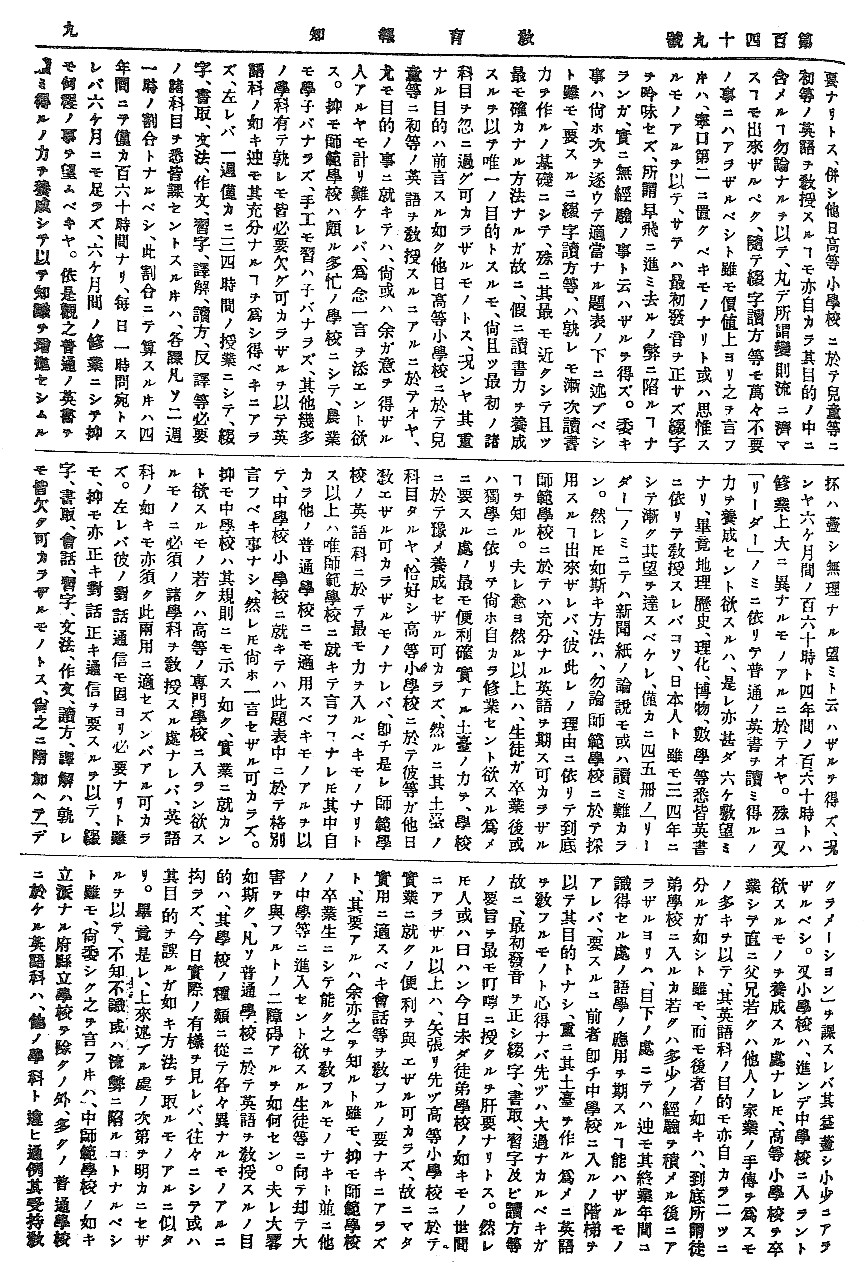 第百四十九號
敎育報知
九
要ナリトス、併シ他日高等小學校ニ於テ兒童等ニ
初等ノ英語ヲ敎授スルヿモ亦自カラ其目的ノ中ニ
含メルヿ勿論ナルヲ以テ、丸デ所謂變則流ニ濟マ
スヿモ出來ザルベク、隨テ綴字讀方等モ萬々不要
ノ事ニハアラザルベシト雖モ價値上ヨリ之ヲ言フ
片ハ、寧ロ第二ニ置クベキモノナリト或ハ思惟ス
ルモノアルヲ以テ、サテハ最初發音ヲ正サズ綴字
ヲ吟味セズ、所謂早飛ニ進ミ去ルノ弊ニ陷ルヿナ
ランガ、實ニ無經驗ノ事ト云ハザルヲ得ズ。委キ
事ハ尙ホ次ヲ逐ウテ適當ナル題表ノ下ニ述ブベシ
ト雖モ、要スルニ綴字讀方等ハ孰レモ漸次讀書
力ヲ作ルノ基礎ニシテ、殊ニ其最モ近クシテ且ツ
最モ確カナル方法ナルガ故ニ、假ニ讀書力ヲ養成
スルヲ以テ唯一ノ目的トスルモ、尙且ツ最初ノ諸
科目ヲ忽ニ過グ可カラザルモノトス、况ンヤ其重
ナル目的ハ前言スル如ク他日高等小學校ニ於テ兒
童等ニ初等ノ英語ヲ敎授スルニアルニ於テオヤ、
尤モ目的ノ事ニ就キテハ、尙或ハ余ガ意ヲ得ザル
人アルヤモ計リ難ケレバ、爲念一言ヲ添エント欲
ス。抑モ師範學校ハ頗ル多忙ノ學校ニシテ、農業
モ學子バナラズ、手工モ習ハ子バナラズ、其他幾多
ノ學科有テ孰レモ皆必要欠グ可カラザルヲ以テ英
語科ノ如キ迚モ其充分ナルヿヲ爲シ得ベキニアラ
ズ、左レバ一週僅カニ三四時間ノ授業ニシテ、綴
字、書取、文法、作文、習字、譯解、讀方、反譯等必要
ノ諸科目ヲ悉皆課セントスル片ハ、各課凡ソ二週
一時ノ割合トナルベシ、此割合ニテ算スル片ハ四
年間ニテ僅カ百六十時間ナリ、每日一時間宛トス
レバ六ケ月ニモ足ラズ、六ケ月間ノ修業ニシテ抑
モ何程ノ事ヲ望ムベキヤ。依是觀之普通ノ英書ヲ
讀ミ得ルノ力ヲ養成シテ以テ知識ヲ增進セシムル
抔ハ蓋シ無理ナル望ミト云ハザルヲ得ズ、况
ンヤ六ケ月間ノ百六十時ト四年間ノ百六十時トハ
修業上大ニ異ナルモノアルニ於テオヤ。殊ニ又
「リーダー」ノミニ依リテ普通ノ英書ヲ讀ミ得ルノ
力ヲ養成セント欲スルハ、是レ亦甚ダ六ケ敷望ミ
ナリ、畢竟地理歷史、理化、博物、數學等悉皆英書
ニ依リテ敎授スレバコソ、日本人ト雖モ三四年ニ
シテ漸ク其望ヲ達スベケレ、僅カニ四五册ノ「リー
ダー」ノミニテハ新聞紙ノ論說モ或ハ讀ミ難カラ
ン。然レ𪜈如斯キ方法ハ、勿論師範學校ニ於テ採
用スルヿ出來ザレバ、彼此レノ理由ニ依リテ到底
師範學校ニ於テハ充分ナル英語ヲ期ス可カラザル
ヿヲ知ル。夫レ愈ヨ然ル以上ハ、生徒ガ卒業後或
ハ獨學ニ依リテ尙ホ自カラ修業セント欲スル爲メ
ニ要スル處ノ最モ便利確實ナル土臺ノ力ヲ、學校
ニ於テ豫メ養成セザル可カラズ、然ルニ其土臺ノ
科目タルヤ、恰好シ高等小學校ニ於テ彼等ガ他日
敎エザル可カラザルモノナレバ、卽チ是レ師範學
校ノ英語科ニ於テ最モ力ヲ入ルベキモノナリト
ス以上ハ唯師範學校ニ就キテ言フヿナレ𪜈其中自
カラ他ノ普通學校ニモ適用スベキモノアルヲ以
テ、中學校小學校ニ就キテハ此題表中ニ於テ格別
言フベキ事ナシ、然レ𪜈尙ホ一言セザル可カラズ。
抑モ中學校ハ其規則ニモ示ス如ク、實業ニ就カン
ト欲スルモノ若クハ高等ノ專門學校ニ入ラン欲ス
ルモノニ必須ノ諸學科ヲ敎授スル處ナレバ、英語
科ノ如キモ亦須ク此兩用ニ適セズンバアル可カラ
ズ。左レバ彼ノ對話通信モ因ヨリ必要ナリト雖
モ、抑モ亦正キ對話正キ通信ヲ要スルヲ以テ、綴
字、書取、會話、習字、文法、作文、讀方、譯解ハ孰レ
モ皆欠ク可カラザルモノトス、尙之ニ附加ヘテ「デ
クラメーション」ヲ課スレバ其益蓋シ小少ニアラ
ザルベシ。又小學校ハ、進ンデ中學校ニ入ラント
欲スルモノヲ養成スル處ナレ𪜈、高等小學校ヲ卒
業シテ直ニ父兄若クハ他人ノ家業ノ手傳ヲ爲スモ
ノ多キヲ以テ、其英語科ノ目的モ亦自カラ二ツニ
分ルガ如シト雖モ、而モ後者ノ如キハ、到底所謂徒
弟學校ニ入ルカ若クハ多少ノ經驗ヲ積メル後ニア
ラザルヨリハ、目下ノ處ニテハ迚モ其終業年間ニ
識得セル處ノ語學ノ應用ヲ期スルヿ能ハザルモノ
アレバ、要スルニ前者卽チ中學校ニ入ルノ階梯ヲ
以テ其目的トナシ、重ニ其土臺ヲ作ル爲メニ英語
ヲ敎フルモノト心得ナバ先ヅハ大過ナカルベキガ
故ニ、最初發音ヲ正シ綴字、書取、習字及ビ讀方等
ノ要旨ヲ最モ叮嚀ニ授クルヲ肝要ナリトス。然レ
𪜈人或ハ曰ハン今日未ダ徒弟學校ノ如キモノ世間
ニアラザル以上ハ、矢張リ先ヅ高等小學校ニ於テ
實業ニ就クノ便利ヲ與エザル可カラズ、故ニマタ
實用ニ適スベキ會話等ヲ敎フルノ要ナキニアラズ
ト、其要アルハ余亦之ヲ知ルト雖モ、抑モ師範學校
ノ卒業生ニシテ能ク之ヲ敎フルモノナキト並ニ他
ノ中學等ニ進入セント欲スル生徒等ニ向テ却テ大
害ヲ與フルトノ二障碍アルヲ如何セン。夫レ大畧
如斯ク、凡ソ普通學校ニ於テ英語ヲ敎授スルノ目
的ハ、其學校ノ種類ニ從テ各々異ナルモノアルニ
拘ラズ、今日實際ノ有樣ヲ見レバ、往々ニシテ或ハ
其目的ヲ誤ルガ如キ方法ヲ取ルモノアルニ似タ
リ。畢竟是レ、上來述ブル處ノ次第ヲ明カニセザ
ルヲ以テ、不知不識或ハ流弊ニ陷ルコトナルベシ
ト雖モ、尙委シク之ヲ言フ片ハ、中師範學校ノ如キ
立派ナル府縣立學校ヲ除クノ外、多クノ普通學校
ニ於ケル英語科ハ、他ノ學科ト違ヒ通例其受持敎